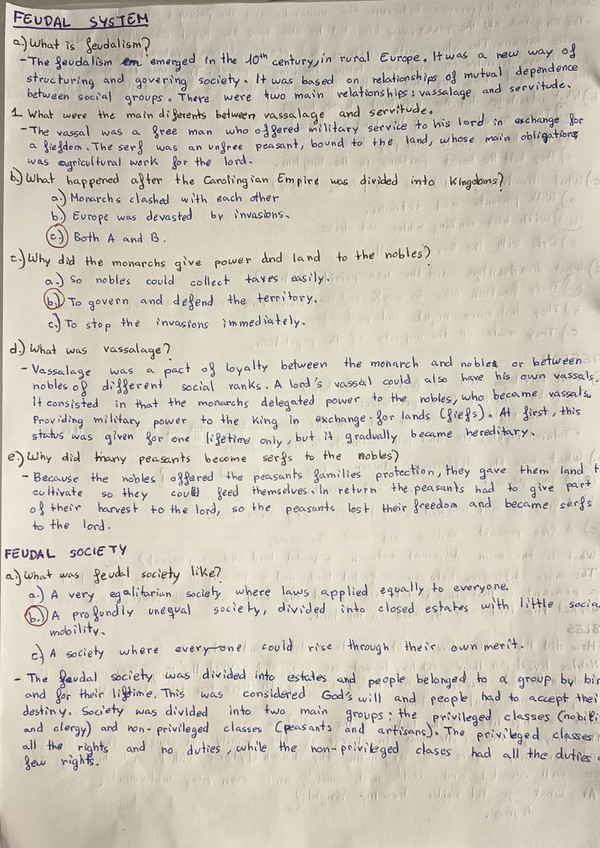 FEUDAL SYSTEM
a.) What is feudalism?
- The feudalism em emerged in the 10th century, in rural Europe. It was a new way of
structuring and govering society. It was based on relationships of mutual dependence
between social groups. There were two main relationships: vassalage and servitude.
1. What were the main diferents between vassalage and servitude.
- The vassal was a free man who offered military service to his lord in exchange for
a fiefdom. The serf was an unfree peasant, bound to the land, whose main obligations
was agricultural work for the lord.
b.) What happened after the Carolingian Empire was divided into Kingdoms?
a.) Monarchs clashed with each other
b.) Europe was devasted by invasions.
c.) Both A and B.
c.) Why did the monarchs give power and land to the nobles?
a.) So nobles could collect taxes easily.
b.) To govern and defend the territory.
c.) To stop the invasions immediately.
d.) What was vassalage?
- Vassalage was a pact of loyalty between the monarch and nobles or between
nobles of different social ranks. A lord's vassal could also have his own vassals.
It consisted in that the monarchs delegated power to the nobles, who became vassals.
Providing military power to the King in exchange for lands (fiefs). At first, this
status was given for one lifetime only, but it gradually became hereditary.
e.) Why did many peasants become serfs to the nobles?
- Because the nobles offered the peasants families protection, they gave them land t
cultivate so they could feed themselves. In return the peasants had to give part
of their harvest to the lord, so the peasants lost their freedom and became serfs
to the lord.
FEUDAL SOCIETY
a.) What was feudal society like?
a.) A very egalitarian society where laws applied equally to everyone.
b.) A profundly unequal society, divided into closed estates with little socia
mobility.
c.) A society where everyone could rise through their own merit.
- The feudal society was divided into estates and people belonged to a group by bir
and for their liftime. This was considered God's will and people had to accept thei
destiny. Society was divided into two main groups: the privileged classes (nobili
and clergy) and non-privileged classes (peasants and artisans). The privileged classes
all the rights and no duties, while the non-privileged clases had all the duties
few rights.